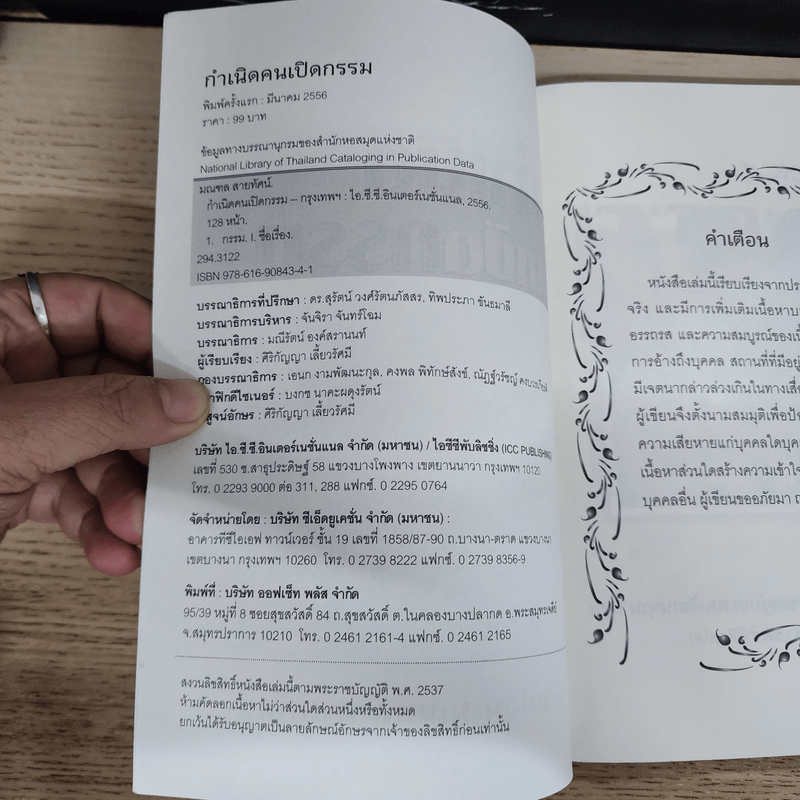 กำเนิดคนเปิดกรรม
พิมพ์ครั้งแรก : มีนาคม 2556
ราคา : 99 บาท
ข้อมูลทางบรรณานุกรมของสำนักหอสมุดแห่งชาติ
National Library of Thailand Cataloging in Publication Data
มณฑล สายทัศน์.
กำเนิดคนเปิดกรรม -- กรุงเทพฯ : ไอ.ซี.ซี.อินเตอร์เนชั่นแนล, 2556.
128 หน้า.
1. กรรม. I. ชื่อเรื่อง.
294.3122
ISBN 978-616-90843-4-1
บรรณาธิการที่ปรึกษา : ดร.สุรัตน์ วงศ์รัตนภัสสร, ทิพประภา ขันธมาลี
บรรณาธิการบริหาร : จันจิรา จันทร์โฉม
บรรณาธิการ : มณีรัตน์ องค์สรานนท์
ผู้เรียบเรียง : ศิริกัญญา เลี้ยวรัศมี
กองบรรณาธิการ : เอนก งามพัฒนะกุล, คงพล พิทักษ์สังข์, ณัฏฐ์วรัชญ์
กราฟิกดีไซเนอร์ : บงกช นาคะผดุงรัตน์
พิสูจน์อักษร : ศิริกัญญา เลี้ยวรัศมี
บริษัท ไอ.ซี.ซี.อินเตอร์เนชั่นแนล จำกัด (มหาชน) / ไอซีซีพับลิชชิ่ง (ICC PUBLISHING)
เลขที่ 530 ซ.สาธุประดิษฐ์ 58 แขวงบางโพงพาง เขตยานนาวา กรุงเทพฯ 10120
โทร. 0 2293 9000 ต่อ 311, 288 แฟกซ์. 0 2295 0764
จัดจำหน่ายโดย : บริษัท ซีเอ็ดยูเคชั่น จำกัด (มหาชน) :
อาคารทีซีไอเอฟ ทาวน์เวอร์ ชั้น 19 เลขที่ 1858/87-90 ถ.บางนา-ตราด แขวงบางนา
เขตบางนา กรุงเทพฯ 10260 โทร. 0 2739 8222 แฟกซ์. 0 2739 8356-9
พิมพ์ที่ : บริษัท ออฟเซ็ท พลัส จำกัด
95/39 หมู่ที่ 8 ซอยสุขสวัสดิ์ 84 ถ.สุขสวัสดิ์ ต.ในคลองบางปลากด อ.พระสมุทรเจดีย์
จ.สมุทรปราการ 10210 โทร. 0 2461 2161-4 แฟกซ์. 0 2461 2165
สงวนลิขสิทธิ์หนังสือเล่มนี้ตามพระราชบัญญัติ พ.ศ. 2537
ห้ามคัดลอกเนื้อหาไม่ว่าส่วนใดส่วนหนึ่งหรือทั้งหมด
ยกเว้นได้รับอนุญาตเป็นลายลักษณ์อักษรจากเจ้าของลิขสิทธิ์ก่อนเท่านั้น
คำเตือน
หนังสือเล่มนี้เรียบเรียงจากประ
จริง และมีการเพิ่มเติมเนื้อหาบ
อรรถรส และความสมบูรณ์ของเนื้
การอ้างถึงบุคคล สถานที่ที่มีอยู่
มีเจตนากล่าวล่วงเกินในทางเสื่อ
ผู้เขียนจึงตั้งนามสมมุติเพื่อป้อ
ความเสียหายแก่บุคคลใดบุคค
เนื้อหาส่วนใดสร้างความเข้าใจ
บุคคลอื่น ผู้เขียนขออภัยมา ณ